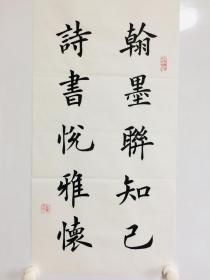 翰墨聯知己
詩書悅雅懷